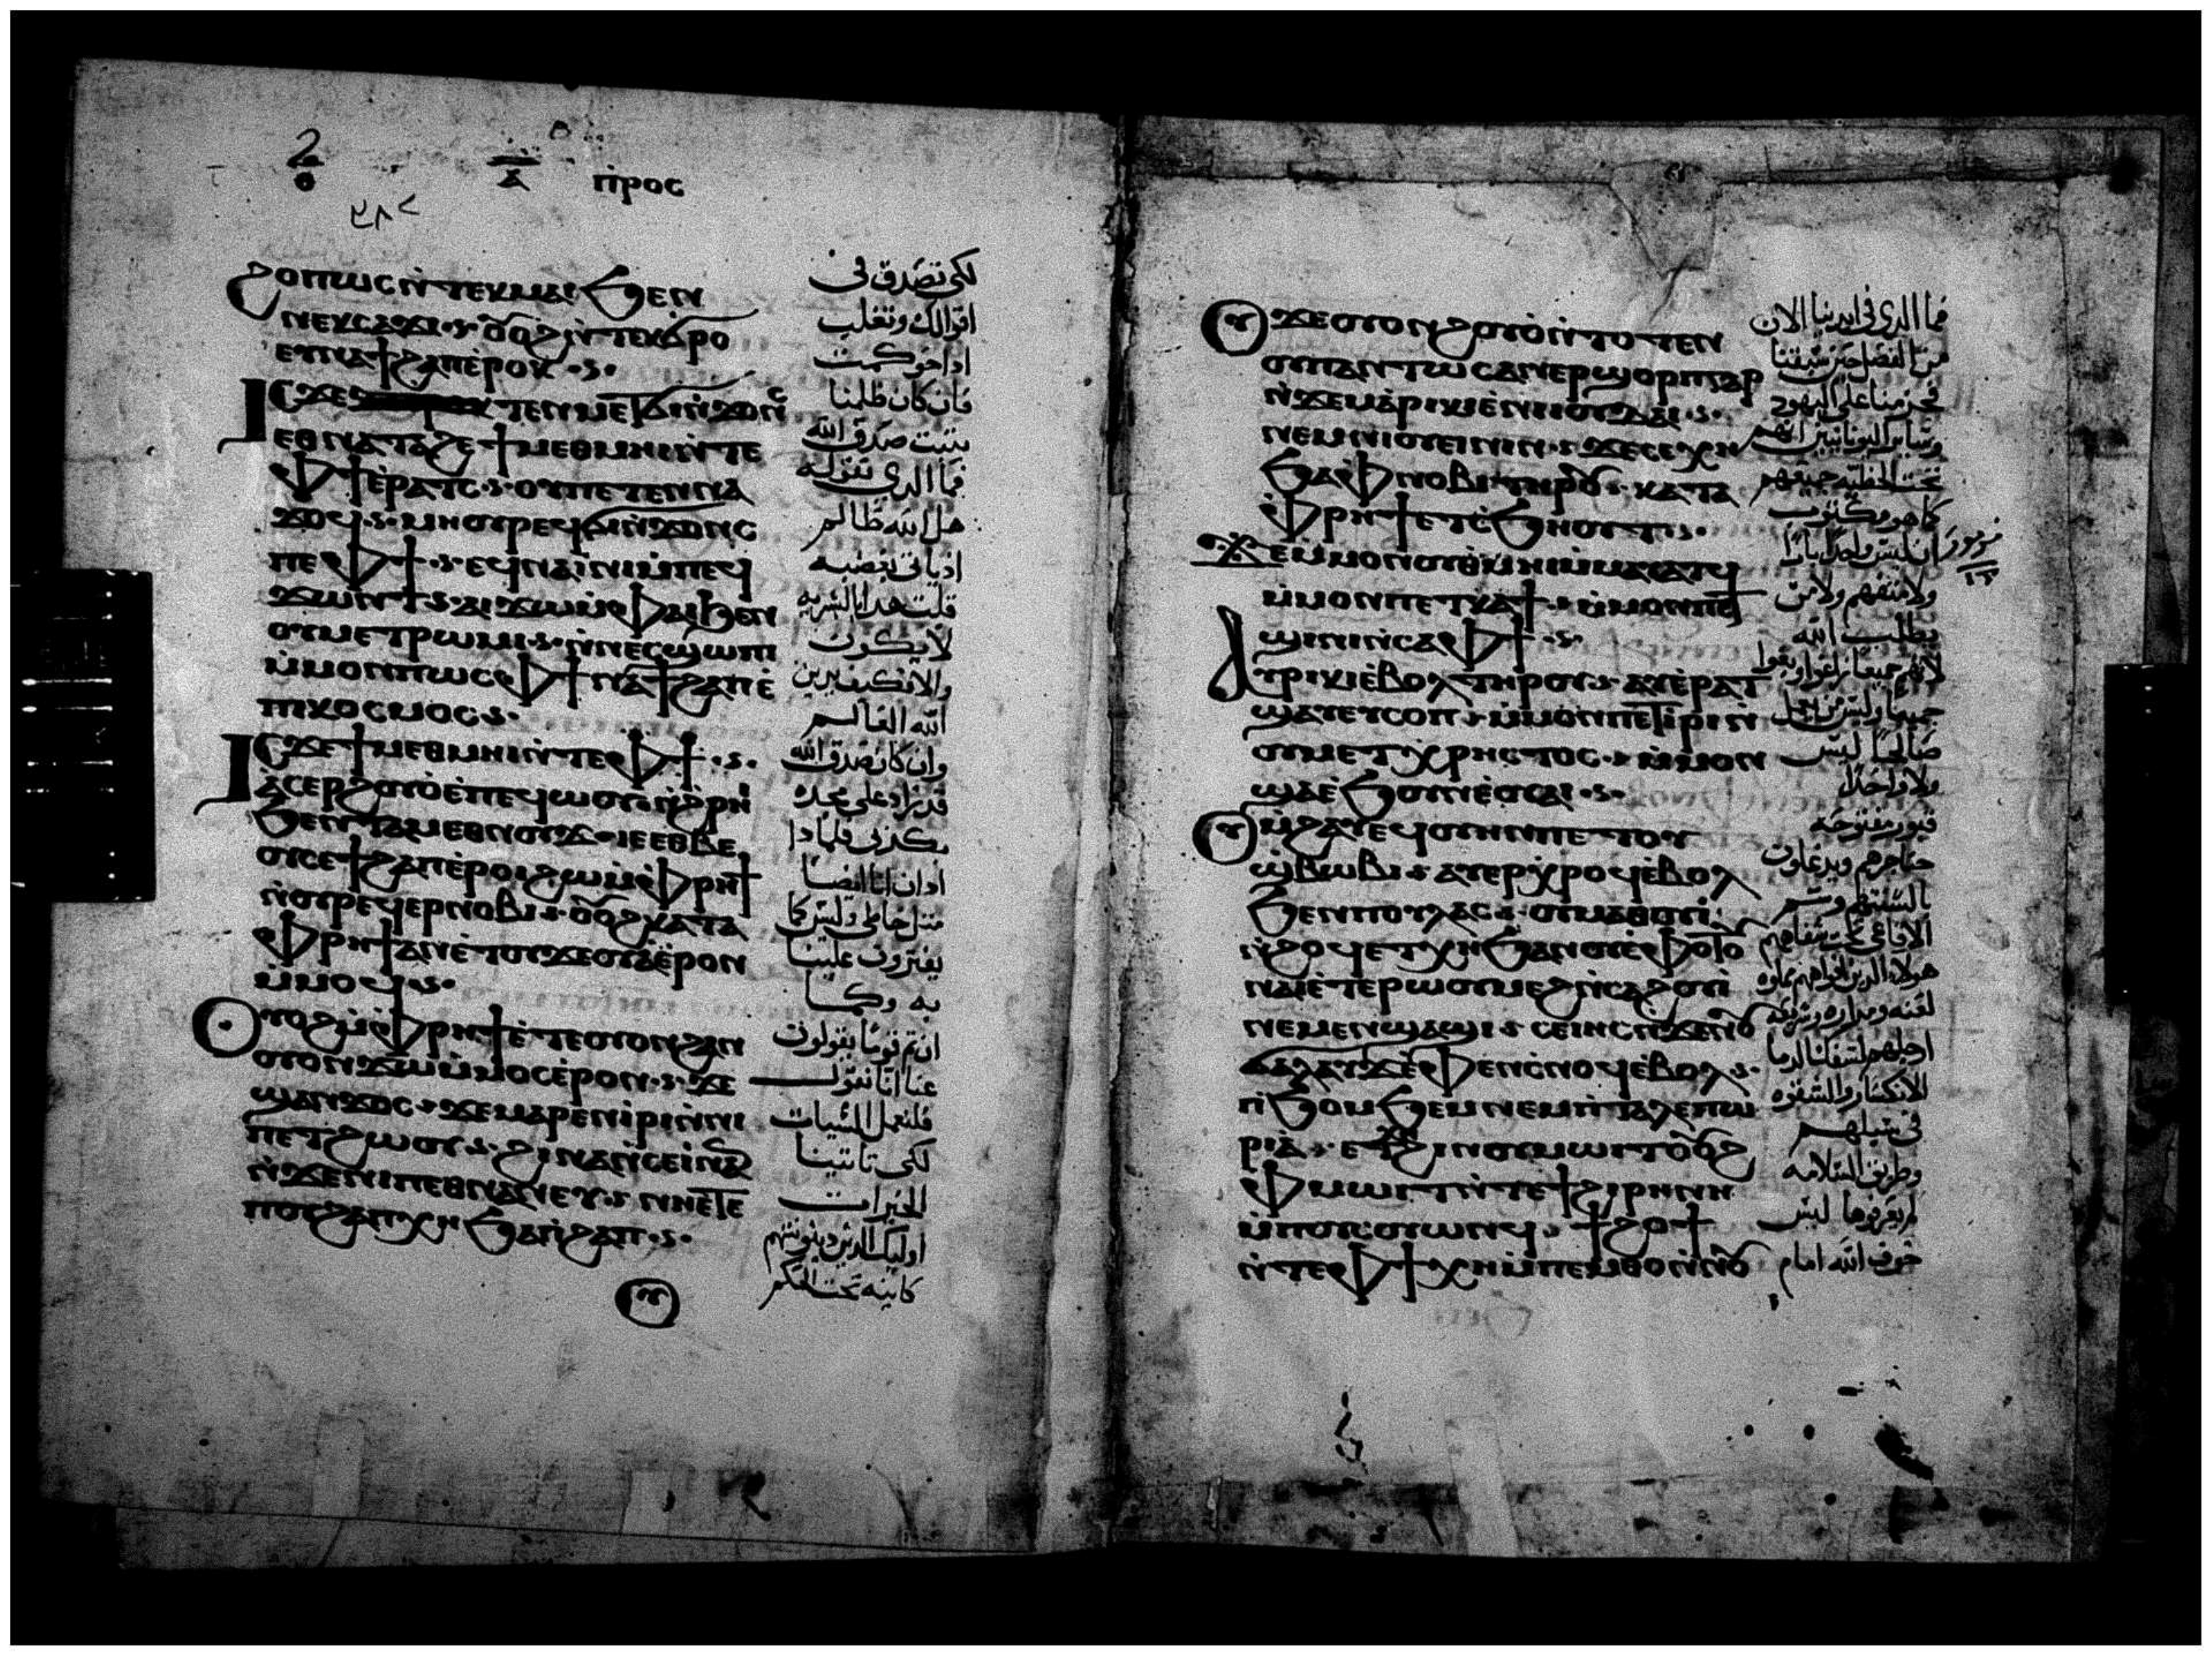 ⲡⲣⲟⲥ
ϩⲟⲡⲱⲥ ⲛ̀ⲧⲉⲕⲙⲁⲓ ϧⲉⲛ
ⲛⲉⲕⲥⲁϫⲓ ⲟⲩⲟϩ ⲛ̀ⲧⲉⲕϭⲣⲟ
ⲉⲩⲛⲁϯϩⲁⲡ ⲉ̀ⲣⲟⲕ
ⲓⲥϫⲉ ⲧⲉⲛⲙⲉⲧϭⲓⲛ̀ϫⲟⲛⲥ
ⲉⲑⲛⲁⲧⲁϩⲉ ϯⲙⲉⲑⲙⲏⲓ ⲛ̀ⲧⲉ
ⲫϯ ⲉ̀ⲣⲁⲧⲥ ⲟⲩ ⲡⲉⲧⲉⲛⲛⲁ
ϫⲟϥ ⲙⲏ ⲟⲩⲣⲉϥϭⲓⲛ̀ϫⲟⲛⲥ
ⲡⲉ ⲫϯ ⲉϥⲛⲁⲓ̀ⲛⲓ ⲙ̀ⲡⲉϥ
ϫⲱⲛⲧ ⲁⲓϫⲱ ⲙ̀ⲫⲁⲓ ϧⲉⲛ
ⲟⲩⲙⲉⲧⲣⲱⲙⲓ ⲛ̀ⲛⲉⲥϣⲱⲡⲓ
ⲙ̀ⲙⲟⲛ ⲡⲱⲥ ⲫϯ ⲛⲁϯϩⲁⲡ ⲉ̀
ⲡⲓⲕⲟⲥⲙⲟⲥ
ⲓⲥϫⲉ ϯⲙⲉⲑⲙⲏⲓ ⲛ̀ⲧⲉ ⲫϯ
ⲁⲥⲉⲣϩⲟⲩⲟ̀ ⲉ̀ⲡⲉϥⲱⲟⲩ ⲛ̀ϩⲣⲏⲓ
ϧⲉⲛ ⲧⲁⲙⲉⲑⲛⲟⲩϫ ⲓⲉ ⲉⲑⲃⲉ
ⲟⲩ ⲥⲉϯϩⲁⲡ ⲉ̀ⲣⲟⲓ ϩⲱ ⲙ̀ⲫⲣⲏϯ
ⲛ̀ⲟⲩⲣⲉϥⲉⲣⲛⲟⲃⲓ ⲟⲩⲟϩ ⲕⲁⲧⲁ
ⲫⲣⲏϯ ⲁⲛ ⲉ̀ⲧⲟⲩϫⲉⲟⲩⲁ̀ ⲉ̀ⲣⲟⲛ
ⲙ̀ⲙⲟϥ
ⲟⲩⲟϩ ⲙ̀ⲫⲣⲏϯ ⲉ̀ⲧⲉ ⲟⲩⲟⲛ ϩⲁⲛ
ⲟⲩⲟⲛ ϫⲱ ⲙ̀ⲙⲟⲥ ⲉ̀ⲣⲟⲛ ϫⲉ
ϣⲁⲛϫⲟⲥ ϫⲉ ⲙⲁⲣⲉⲛⲓ̀ⲣⲓ ⲛ̀ⲛⲓ
ⲡⲉⲧϩⲱⲟⲩ ϩⲓⲛⲁ ⲛ̀ⲥⲉⲓ̀ ⲛⲁⲛ
ⲛ̀ϫⲉ ⲛⲓⲡⲉⲑⲛⲁⲛⲉⲩ ⲛⲏ ⲉⲧⲉ
ⲡⲟⲩϩⲁⲡ ⲭⲏ ϧⲁ ⲡⲓϩⲁⲡ
لكى تصدق فى
اقوالك وتغلب
اذا حوكمت
فان كان ظلمنا
يثبت صدق الله
فما الذي نقوله
هل الله ظالم
اذ ياتى بغضبه
قلت هذا بالبشريه
لا يكون
والا فكيف يدين
الله العالم
وان كان صدق الله
قد زاد على مجده
بكذبى فلماذا
ادان انا ايضا
مثل خاطى وليس كما
يفترون علينا
به وكما
ان ثم قوما يقولون
عنا اننا نقول
فلنعمل السيات
لكى تاتينا
الخيرات
اوليك الذين دينونتهم
كاينه تحت الحكم
ϫⲉ ⲟⲩⲟⲛ ϩⲟⲩⲟ̀ ⲛ̀ⲧⲟⲧⲉⲛ
ⲟⲩ ⲡⲁⲛⲧⲱⲥ ⲁⲛⲉⲣϣⲟⲣⲡ ⲅⲁⲣ
ⲛ̀ϫⲉⲙ ⲁⲣⲓⲕⲓ ⲉ̀ⲛⲓⲓⲟⲩⲇⲁⲓ
ⲛⲉⲙ ⲛⲓⲟⲩⲉⲓⲛⲓⲛ ϫⲉ ⲥⲉⲭⲏ
ϧⲁ ⲫⲛⲟⲃⲓ ⲧⲏⲣⲟⲩ ⲕⲁⲧⲁ
ⲫⲣⲏϯ ⲉⲧⲥ̀ϧⲏⲟⲩⲧ
ϫⲉ ⲙ̀ⲙⲟⲛ ⲟⲩⲑⲙⲏⲓ ⲙ̀ⲙⲁⲩⲁⲧϥ
ⲙ̀ⲙⲟⲛ ⲡⲉⲧⲕⲁϯ ⲙ̀ⲙⲟⲛ ⲡⲉⲧ
ϣⲓⲛⲓ ⲛ̀ⲥⲁ ⲫϯ
ⲁⲩⲣⲓⲕⲓ ⲉ̀ⲃⲟⲗ ⲧⲏⲣⲟⲩ ⲁⲩⲉⲣⲁⲧ
ϣⲁⲩ ⲉⲩⲥⲟⲡ ⲙ̀ⲙⲟⲛ ⲡⲉⲧⲓ̀ⲣⲓ ⲛ̀
ⲟⲩⲙⲉⲧⲭⲣⲏⲥⲧⲟⲥ ⲙ̀ⲙⲟⲛ
ϣⲁ ⲉ̀ϧⲟⲩⲛ ⲉ̀ⲟⲩⲁⲓ
ⲟⲩⲙ̀ϩⲁⲩ ⲉϥⲟⲩⲏⲛ ⲡⲉ ⲧⲟⲩ
ϣⲃⲱⲃⲓ ⲁⲩⲉⲣⲭⲣⲟϥ ⲉ̀ⲃⲟⲗ
ϧⲉⲛ ⲡⲟⲩⲗⲁⲥ ⲟⲩⲙⲁⲑⲟⲩⲓ̀
ⲛ̀ϩⲟϥ ⲉⲧⲭⲏ ϧⲁ ⲛⲟⲩⲥ̀ⲫⲟⲧⲟⲩ
ⲛⲁⲓ ⲉ̀ⲧⲉ ⲣⲱⲟⲩ ⲙⲉϩ ⲛ̀ⲥⲁϩⲟⲩⲓ
ⲛⲉⲙ ⲉⲛϣⲁϣⲓ ⲥⲉⲓⲏⲥ ⲛ̀ϫⲉ ⲛⲟⲩ
ϭⲁⲗⲁⲩϫ ⲉ̀ⲫⲉⲛ ⲥ̀ⲛⲟϥ ⲉ̀ⲃⲟⲗ
ⲡ̀ϧⲟⲙϧⲉⲙ ⲛⲉⲙ ⲡ̀ⲧⲁⲗⲉⲡⲱ
ⲣⲓⲁ̀ ⲉⲧϩⲓ ⲛⲟⲩⲙⲱⲓⲧ ⲟⲩⲟϩ
ⲫⲙⲱⲓⲧ ⲛ̀ⲧⲉ ϯϩⲓⲣⲏⲛⲏ
ⲙ̀ⲡⲟⲩⲥⲟⲩⲱⲛϥ ϯϩⲟϯ
ⲛ̀ⲧⲉ ⲫϯ ⲭⲏ ⲙ̀ⲡⲉⲙⲑⲟ ⲛ̀ⲛⲟⲩ
فما الذي فى ايدينا الان
من الفضل حين سبقنا
فحزمنا على اليهود
وساير اليونانيين انهم
تحت الخطيه جميعهم
كما هو مكتوب
ان ليس واحدا بارا
مزمور ١٣
ولا متفهم ولا من
يطلب الله
لانهم جميعا زاغوا وبقوا
جميعا وليس من يعمل
صالحا ليس
ولا واحدا
قبور مفتوحه
حناجرهم ويدغلون
بالسنتهم وسم
الافاعى تحت شفاههم
هولاء الذين افواههم مملوه
لعنه ومراره وسريعه
ارجلهم لسفك الدما
الانكسار والشقوه
فى سبلهم
وطريق السلامه
لم يعرفوها ليس
خوف الله امام